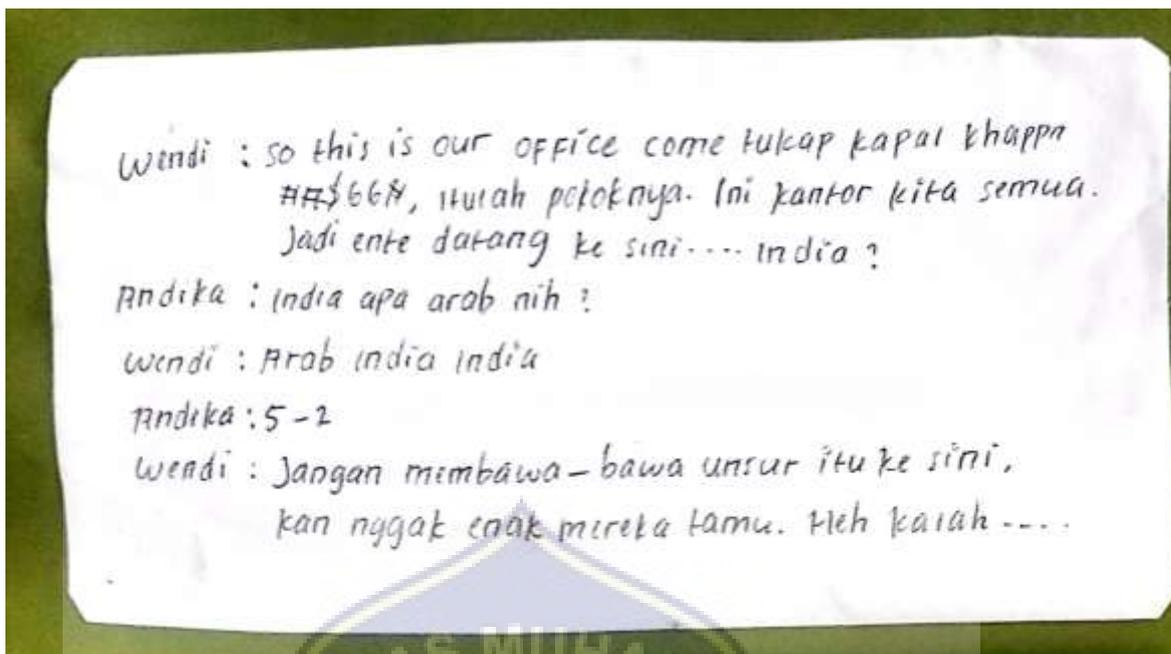 Wendi : So this is our office come tukap kapal khappa
##$66#, itulah pokoknya. Ini kantor kita semua.
Jadi ente datang ke sini.... India ?
Andika : India apa arab nih ?
Wendi : Arab india india
Andika : 5-2
Wendi : Jangan membawa-bawa unsur itu ke sini,
kan nggak enak mereka tamu. Heh kalah ....
S MUH